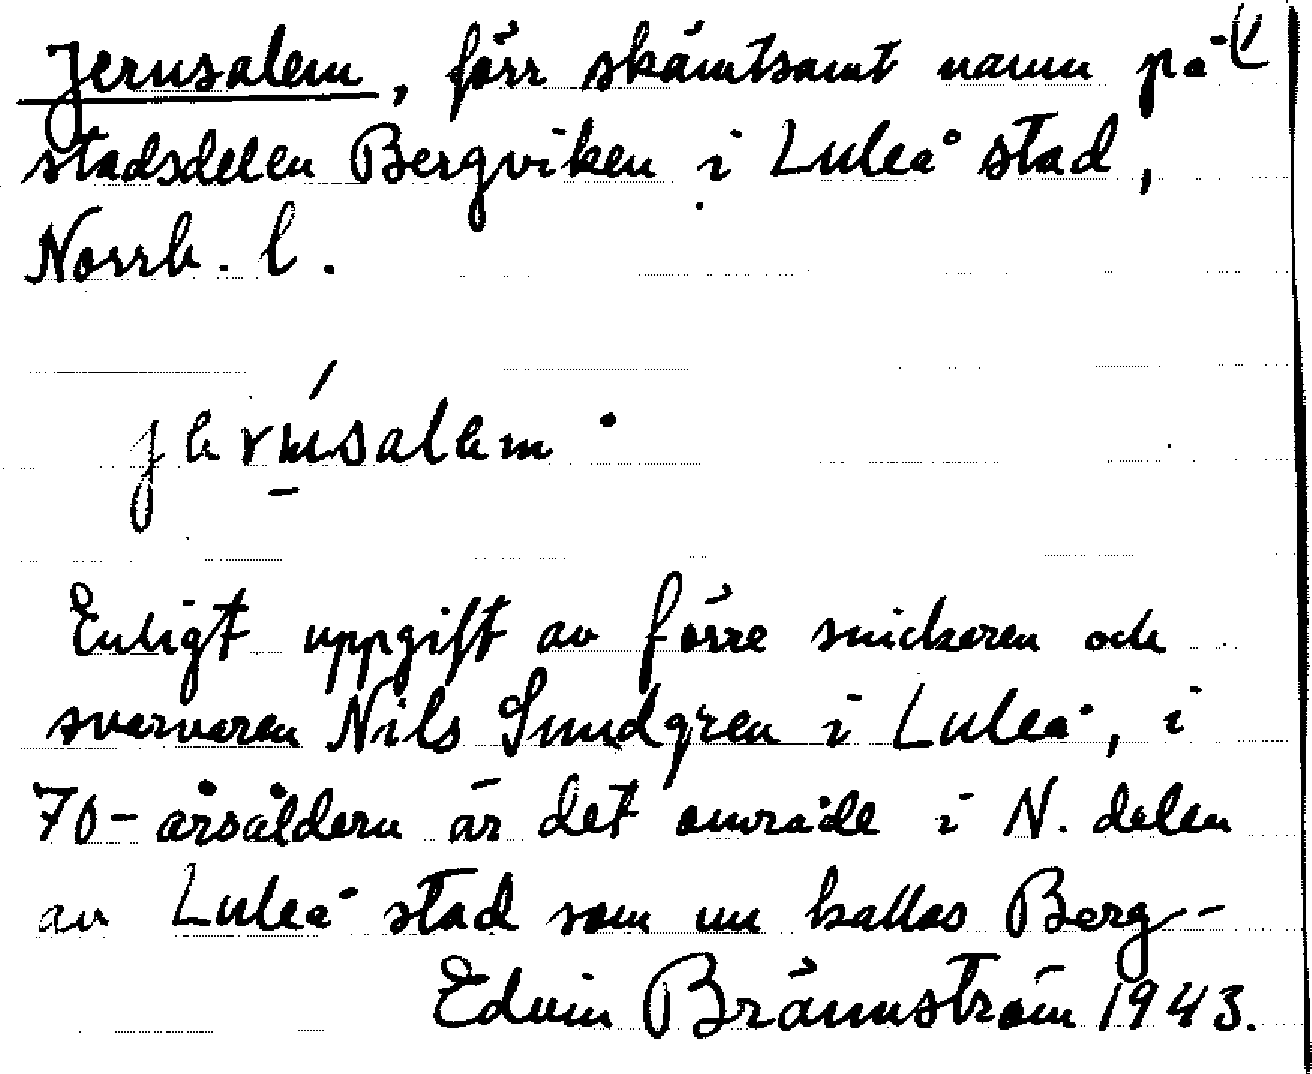 Jerusalem, förr skämtsamt namn på
stadsdelen Bergviken i Luleå stad,
Norrb. l.
jerúsalem
Enligt uppgift av förre snickaren och
svarvaren Nils Sundgren i Luleå, i
70-årsåldern är det område i N. delen
av Luleå stad som nu kallas Berg-
Edvin Brännström 1943.